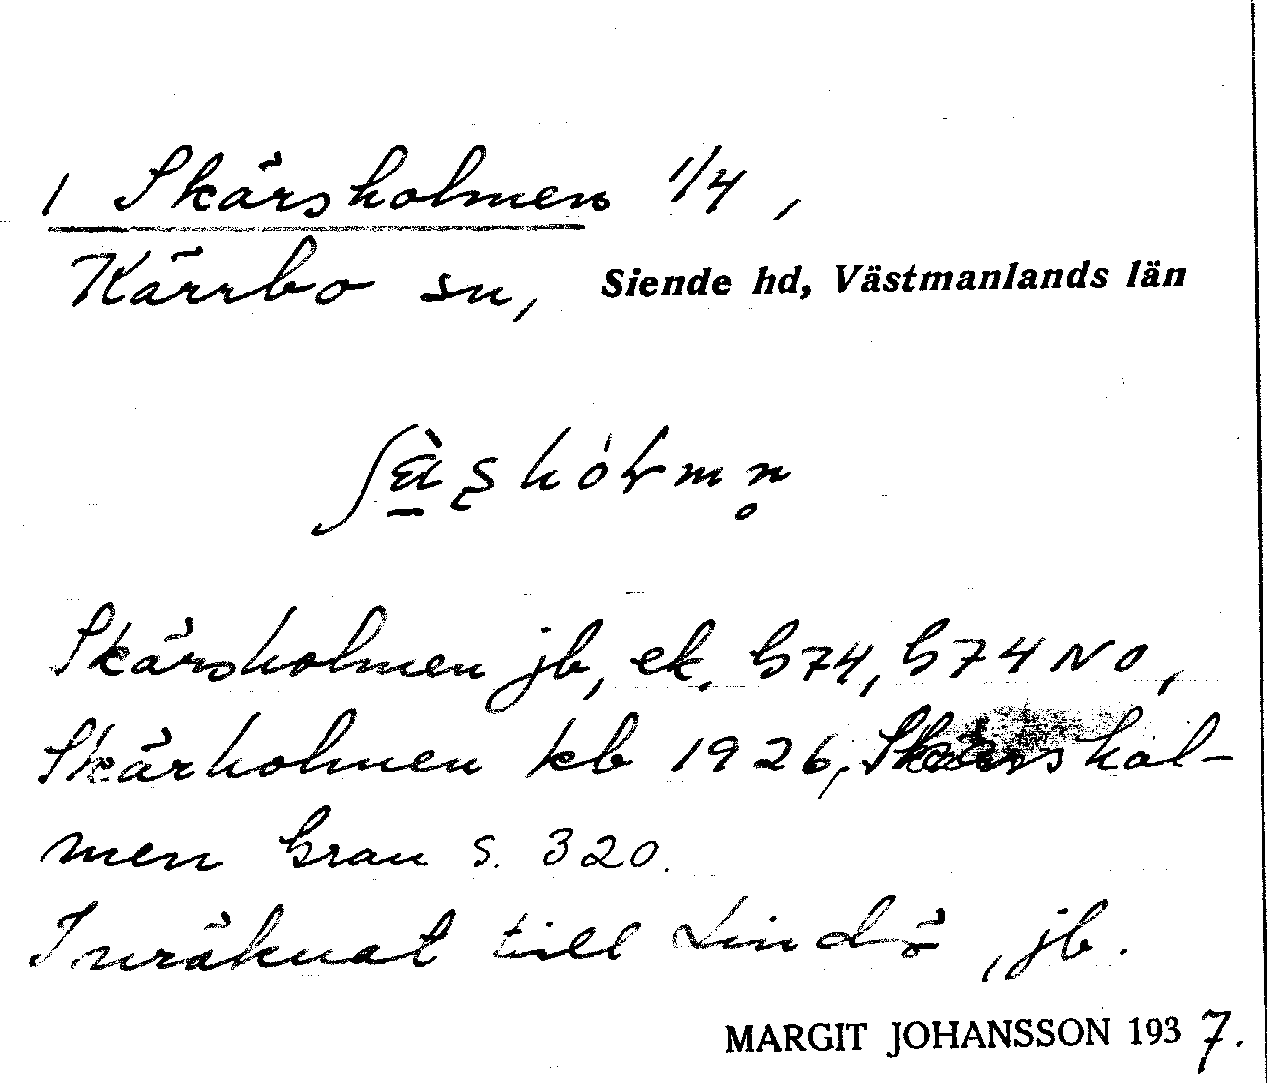 1 Skärsholmen 1/4,
Kärrbo sn, Siende hd, Västmanlands län
Skärsholmen jb, ek. G74, G74 NO,
Skärholmen kb 1926, Skärshol-
men Grau s. 320.
Inräknat till Lindö, jb.
MARGIT JOHANSSON 1937.